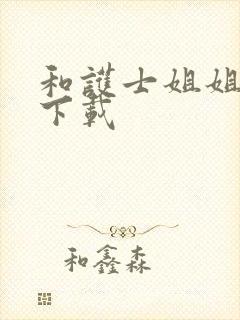 和護士姐姐
下載
和鑫森